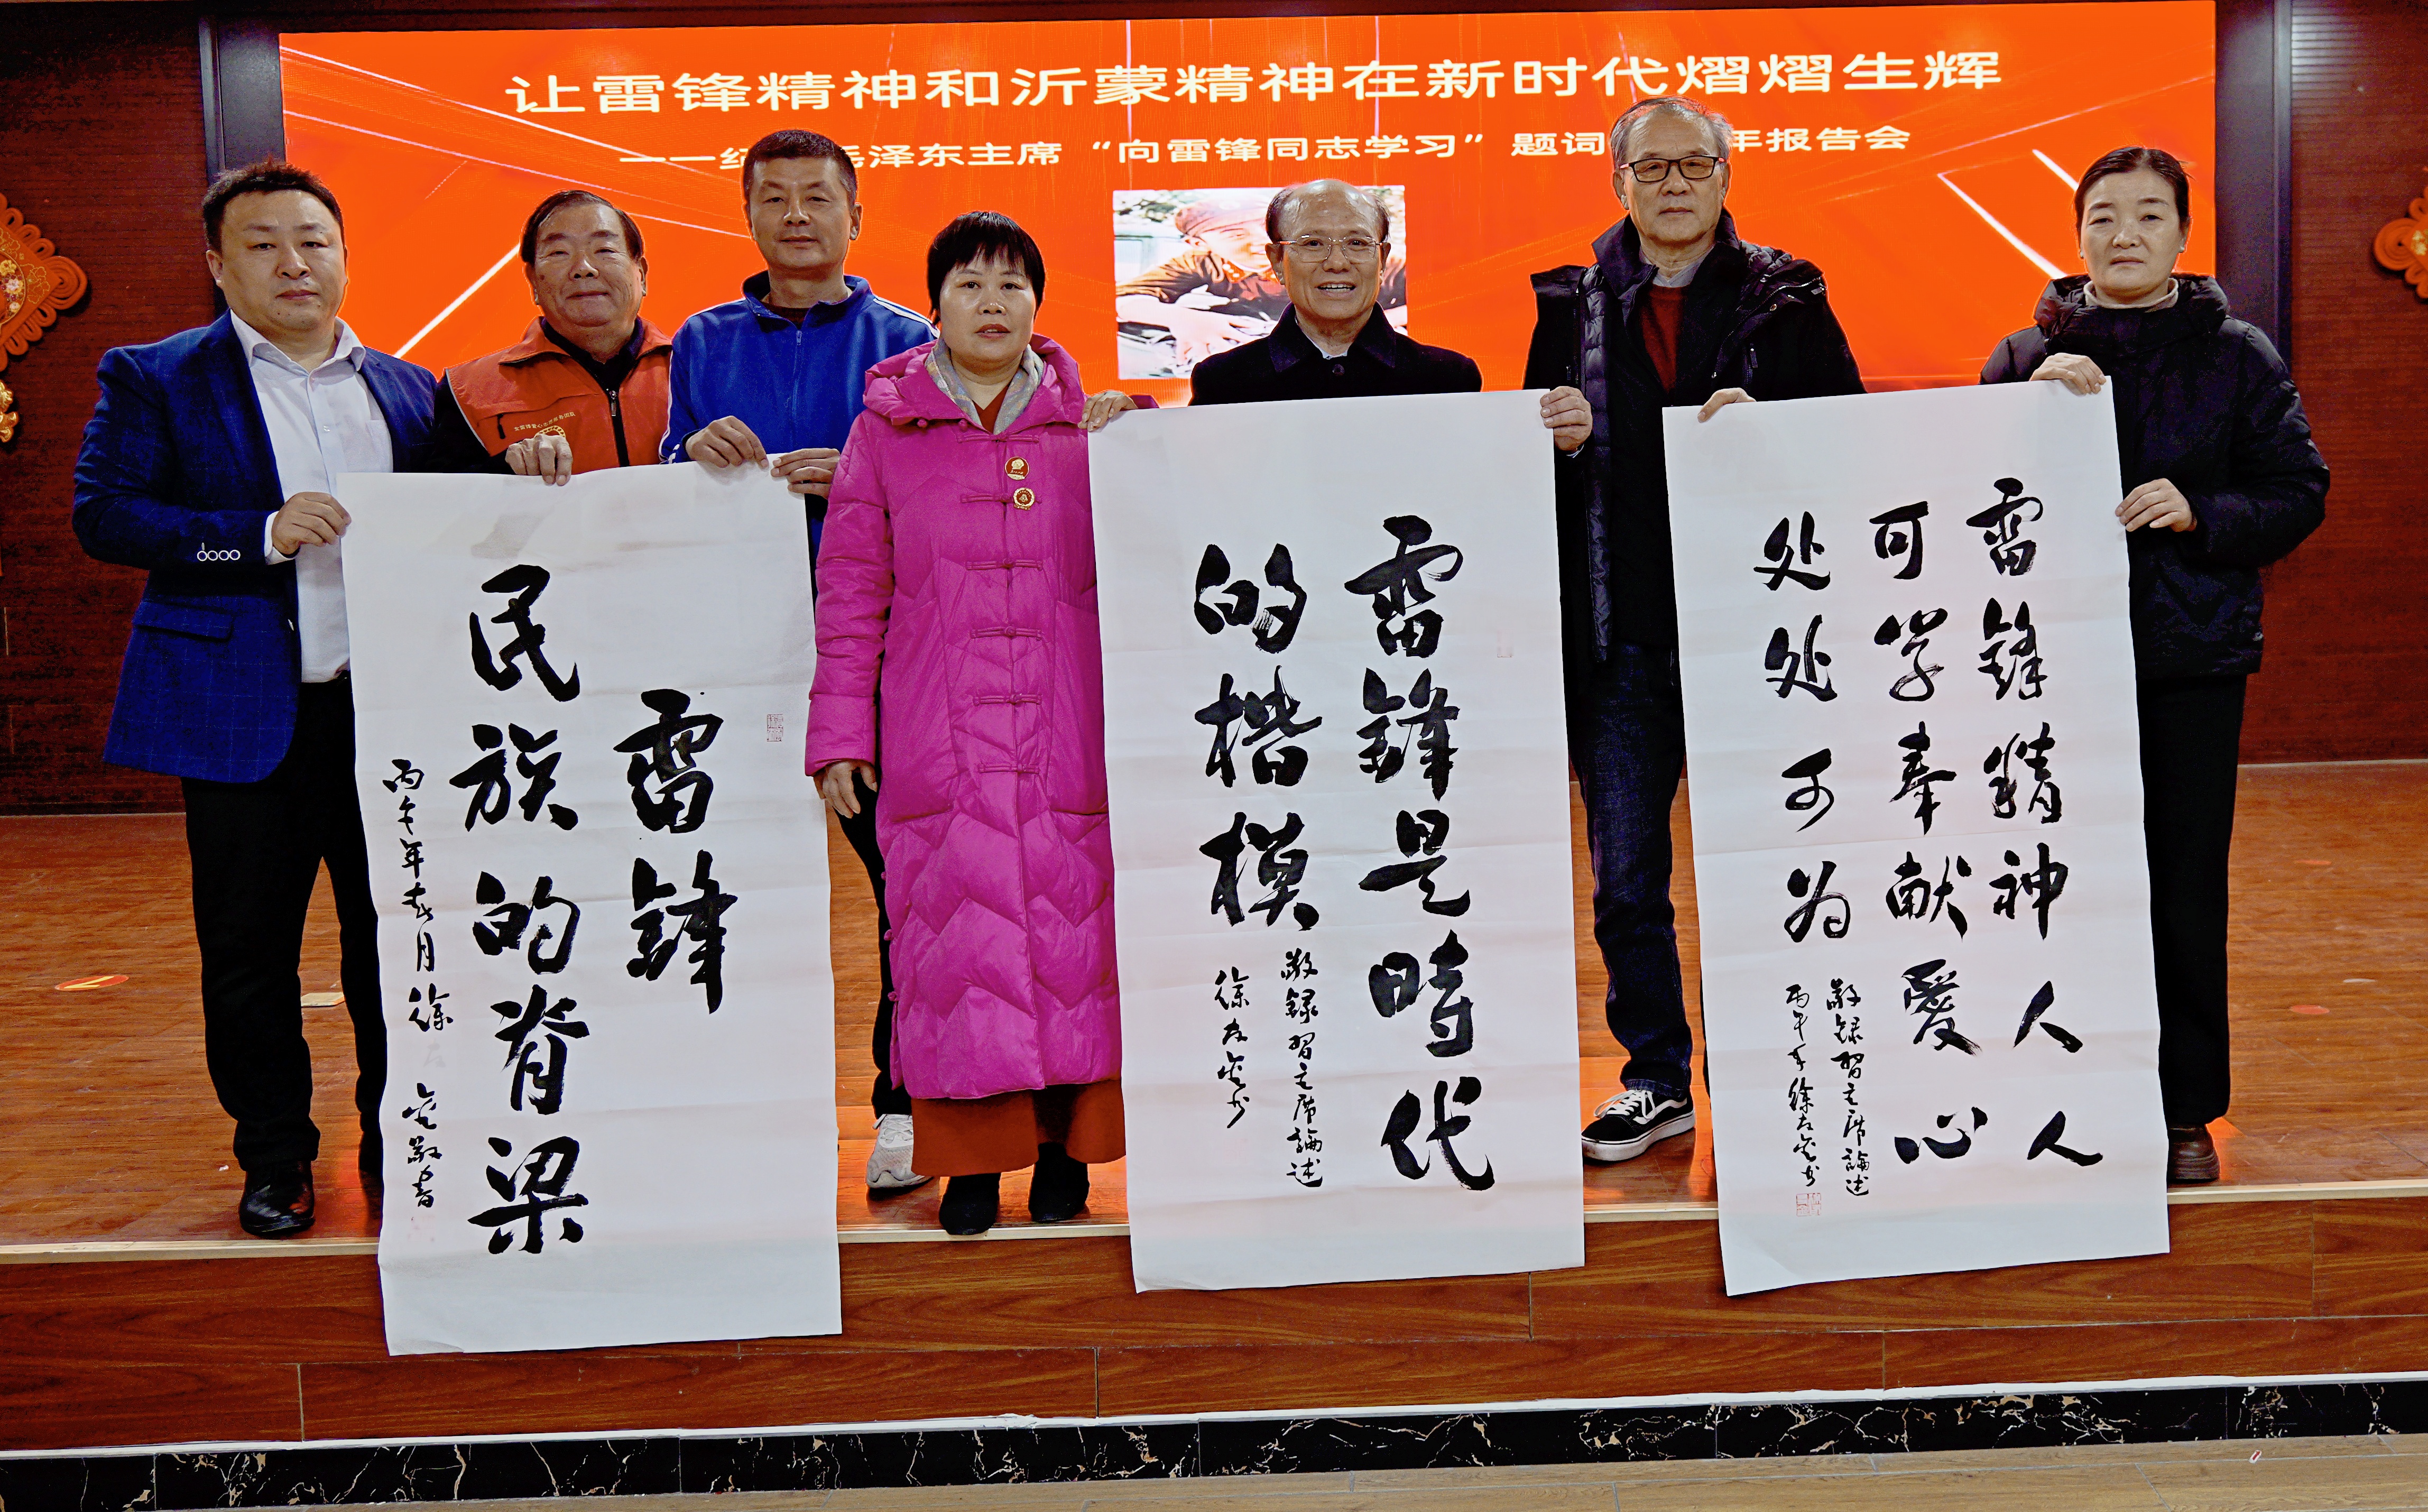 让雷锋精神和沂蒙精神在新时代熠熠生辉
——纪 毛泽东主席“向雷锋同志学习”题词 年报告会
雷锋
民族的脊梁
丙午年春月徐 金敬書
雷锋是時代
的楷模
敬録習主席論述
徐 金书
雷锋精神人人
可学奉献愛心
处处可为
敬録習主席論述
丙午年徐 金书